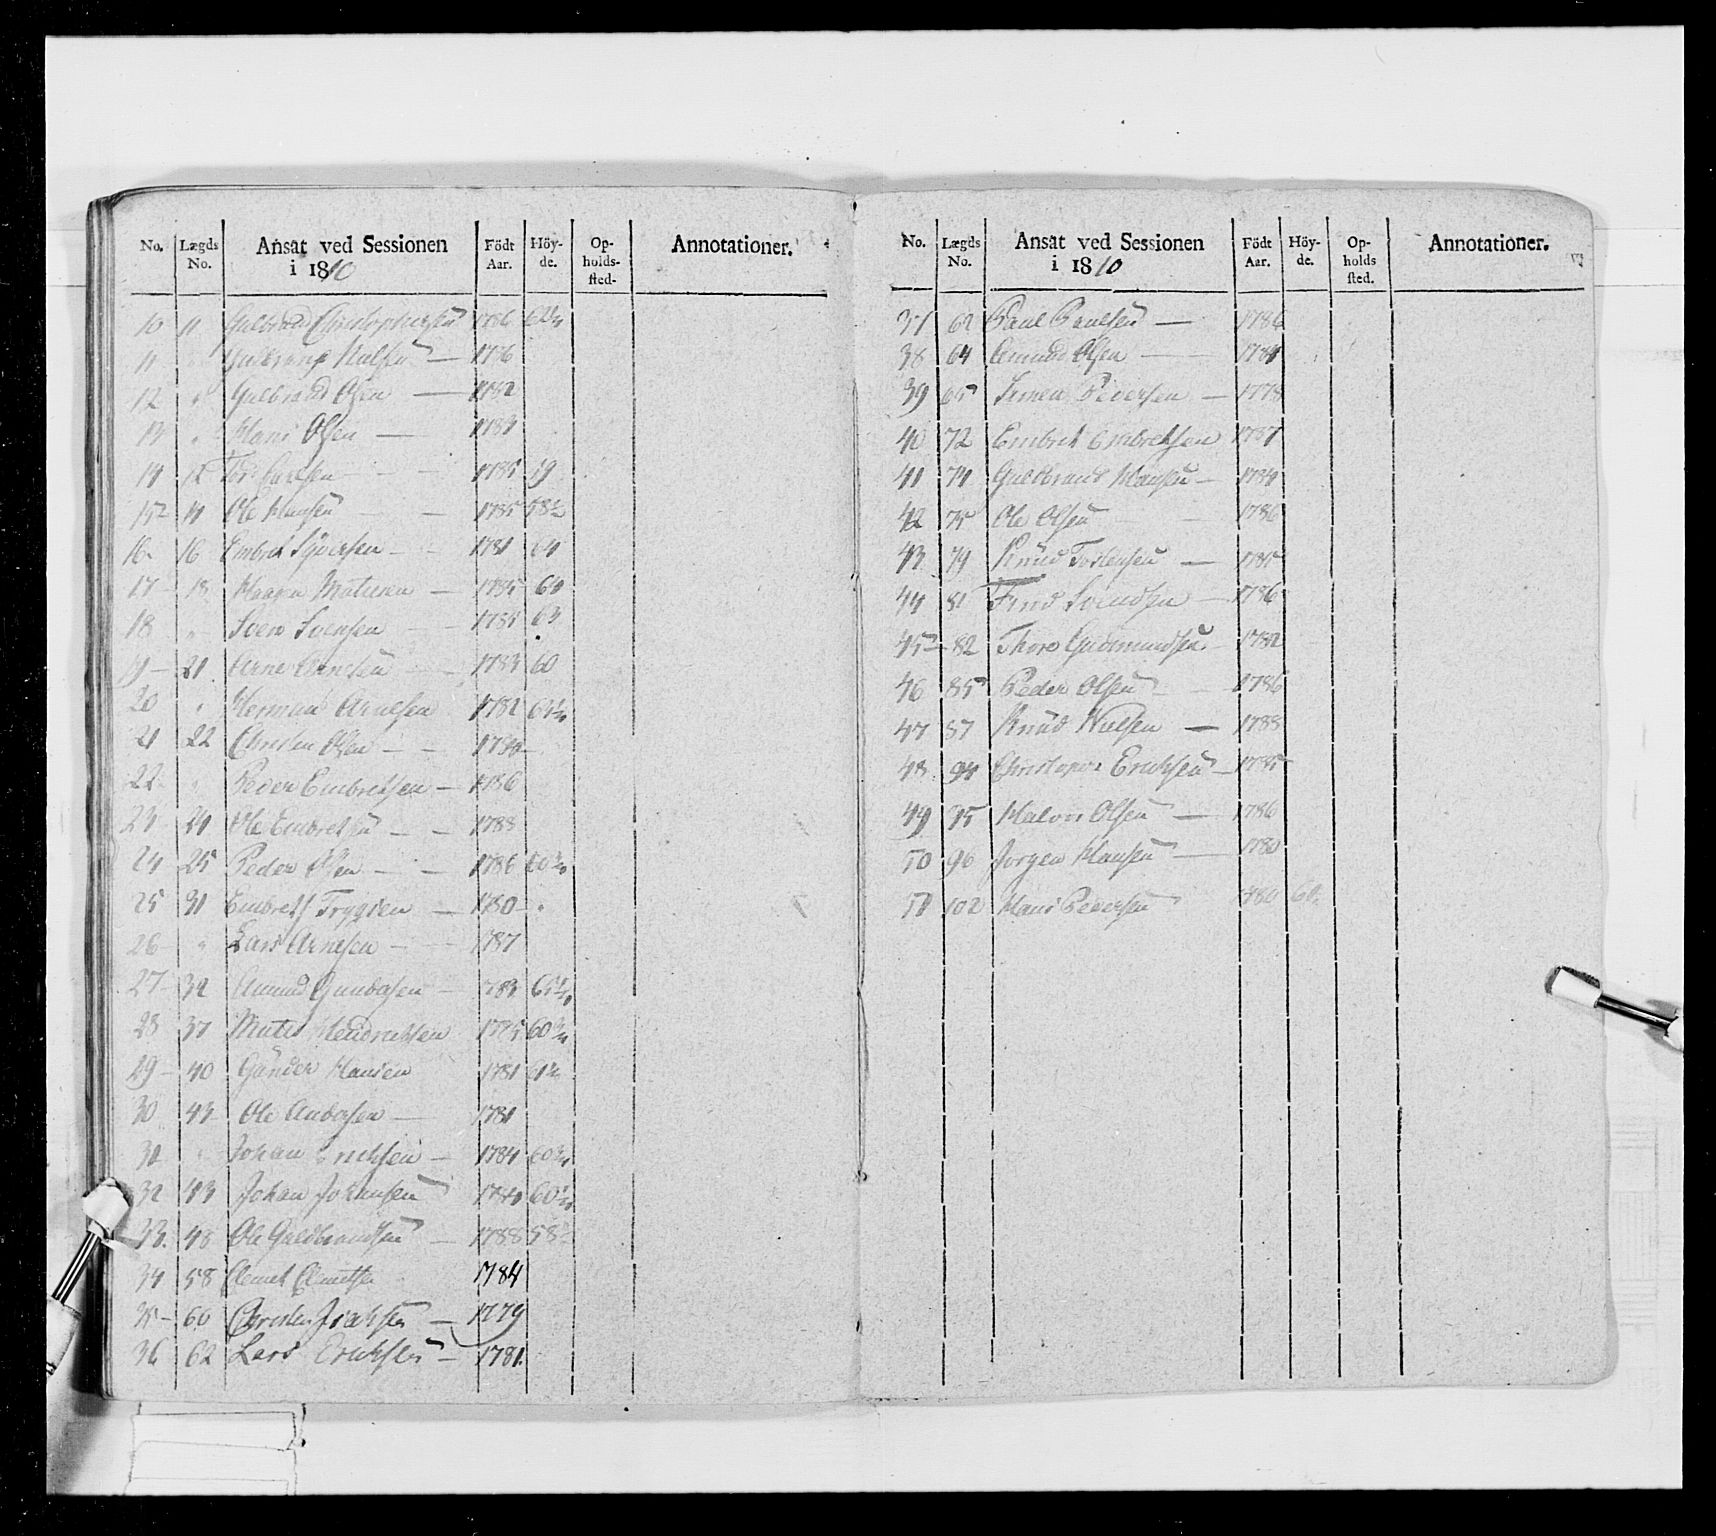 No. Lægds No. Ansat ved Sessionen i 1810 Födt Aar. Höyde. Opholdssted. Annotationer.
10 11 Gulbrand Christophersen 1786
11 " Nielsen 1786
12 " Gulbrand Olsen 1782
13 " Hans Olsen — 1784
14 12 Larsen 1785 59
15 14 Ole Hansen 1785 58½
16 16 Embret Syversen 1781 64
17 18 Haagen Madsen 1785 60
18 " Svend Svensen 1785 63
19 21 Arne Arnesen 1783 60
20 " Herman Arnesen 1782
21 22 Christen Olsen 1784
22 " Peder Embretsen — 1786
23 24 Ole Embretsen 1788
24 25 Peder Olsen 1786
25 31 Embret Trygsen — 1780
26 " Lars Arnesen 1787
27 32 Amund 1783
28 37 Hendrichsen 1775 60¾
29 40 Günder Hansen 1781
30 43 Ole Andersen 1781
31 " Johan Erichsen — 1784
32 43 Johan Johansen 1784 60½
33. 48 Ole Guldbrandsen 1788 58½
34 58 Clemet Clemetsen 1784
35 60 Christen 1779
36 62 Lars Erichsen — 1781.
No. Lægds No. Ansat ved Sessionen i 1810 Födt Aar. Höyde. Opholds sted. Annotationer.
37 62 Paul Paulsen — 1786
38 64 Amund Olsen — 1784
39 65 Simen Pedersen — 1778
40 72 Embret Embretsen 1787
41 74 Guldbrand Hansen — 1784
42 75 Ole Olsen — 1786
43 79 Knud Torstensen — 1785
44 81 Find Svendsen — 1786
45 82 Thore Gudmundsen 1782
46 85 Peder Olsen 1786
47 87 Knud Nielsen — 1788
48 94 Christopher Erichsen — 1785
49 95 Halvor Olsen — 1786
50 96 Jörgen Hansen — 1780
51 102 Hans Pedersen 1780 60